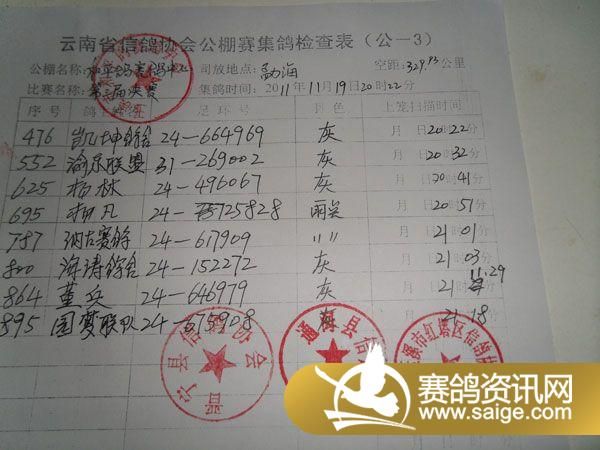 云南省信鸽协会公棚赛集鸽检查表（公－3）
公棚名称: 司放地点: 勐海 空距: 329.93公里
比赛名称: 第二届决赛 集鸽时间: 2011年11月19日20时22分
序号 鸽主姓名 足环号 羽色 上笼扫描时间
476 凯坤鸽舍 24-664969 灰 月 日20时22分
552 渝乐联盟 31-269002 灰 月 日20时32分
625 杨林 24-496067 灰 月 日20时41分
695 杨凡 24-725828 雨点 月 日20时51分
787 纳古赛鸽 24-617909 〃 月 日21时01分
800 海涛鸽舍 24-152272 灰 月 日21时03分
864 董兵 24-646979 灰 月 日21时 11:29
895 国梦联队 24-615908 21 18
晋宁县信鸽协会
通海县
玉溪市红塔区信鸽协会
赛鸽资讯网
www.saige.com